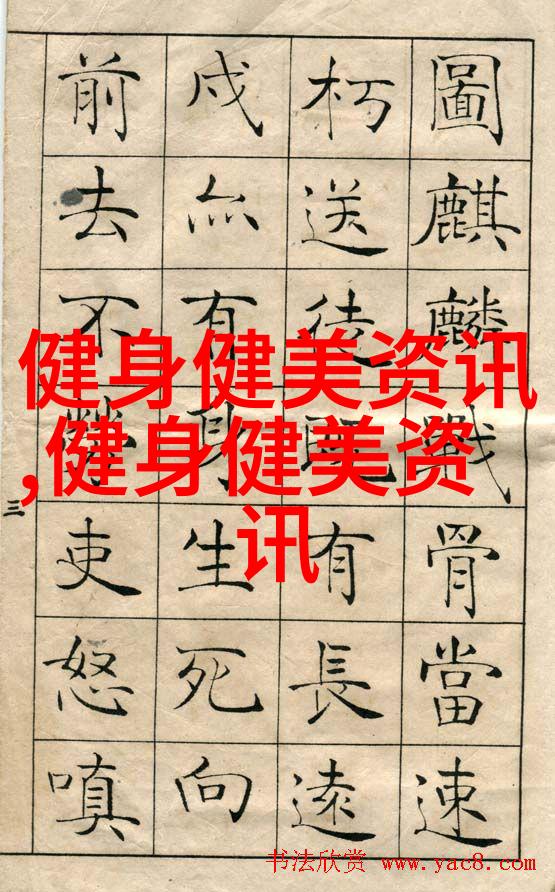 圖麒麟戰骨當速
朽送徒既有長遠
戍亦有身生死向
前去不勞吏怒嗔
三
健身健美资讯
,健身健美资
讯
书法欣赏 www.yac8.com